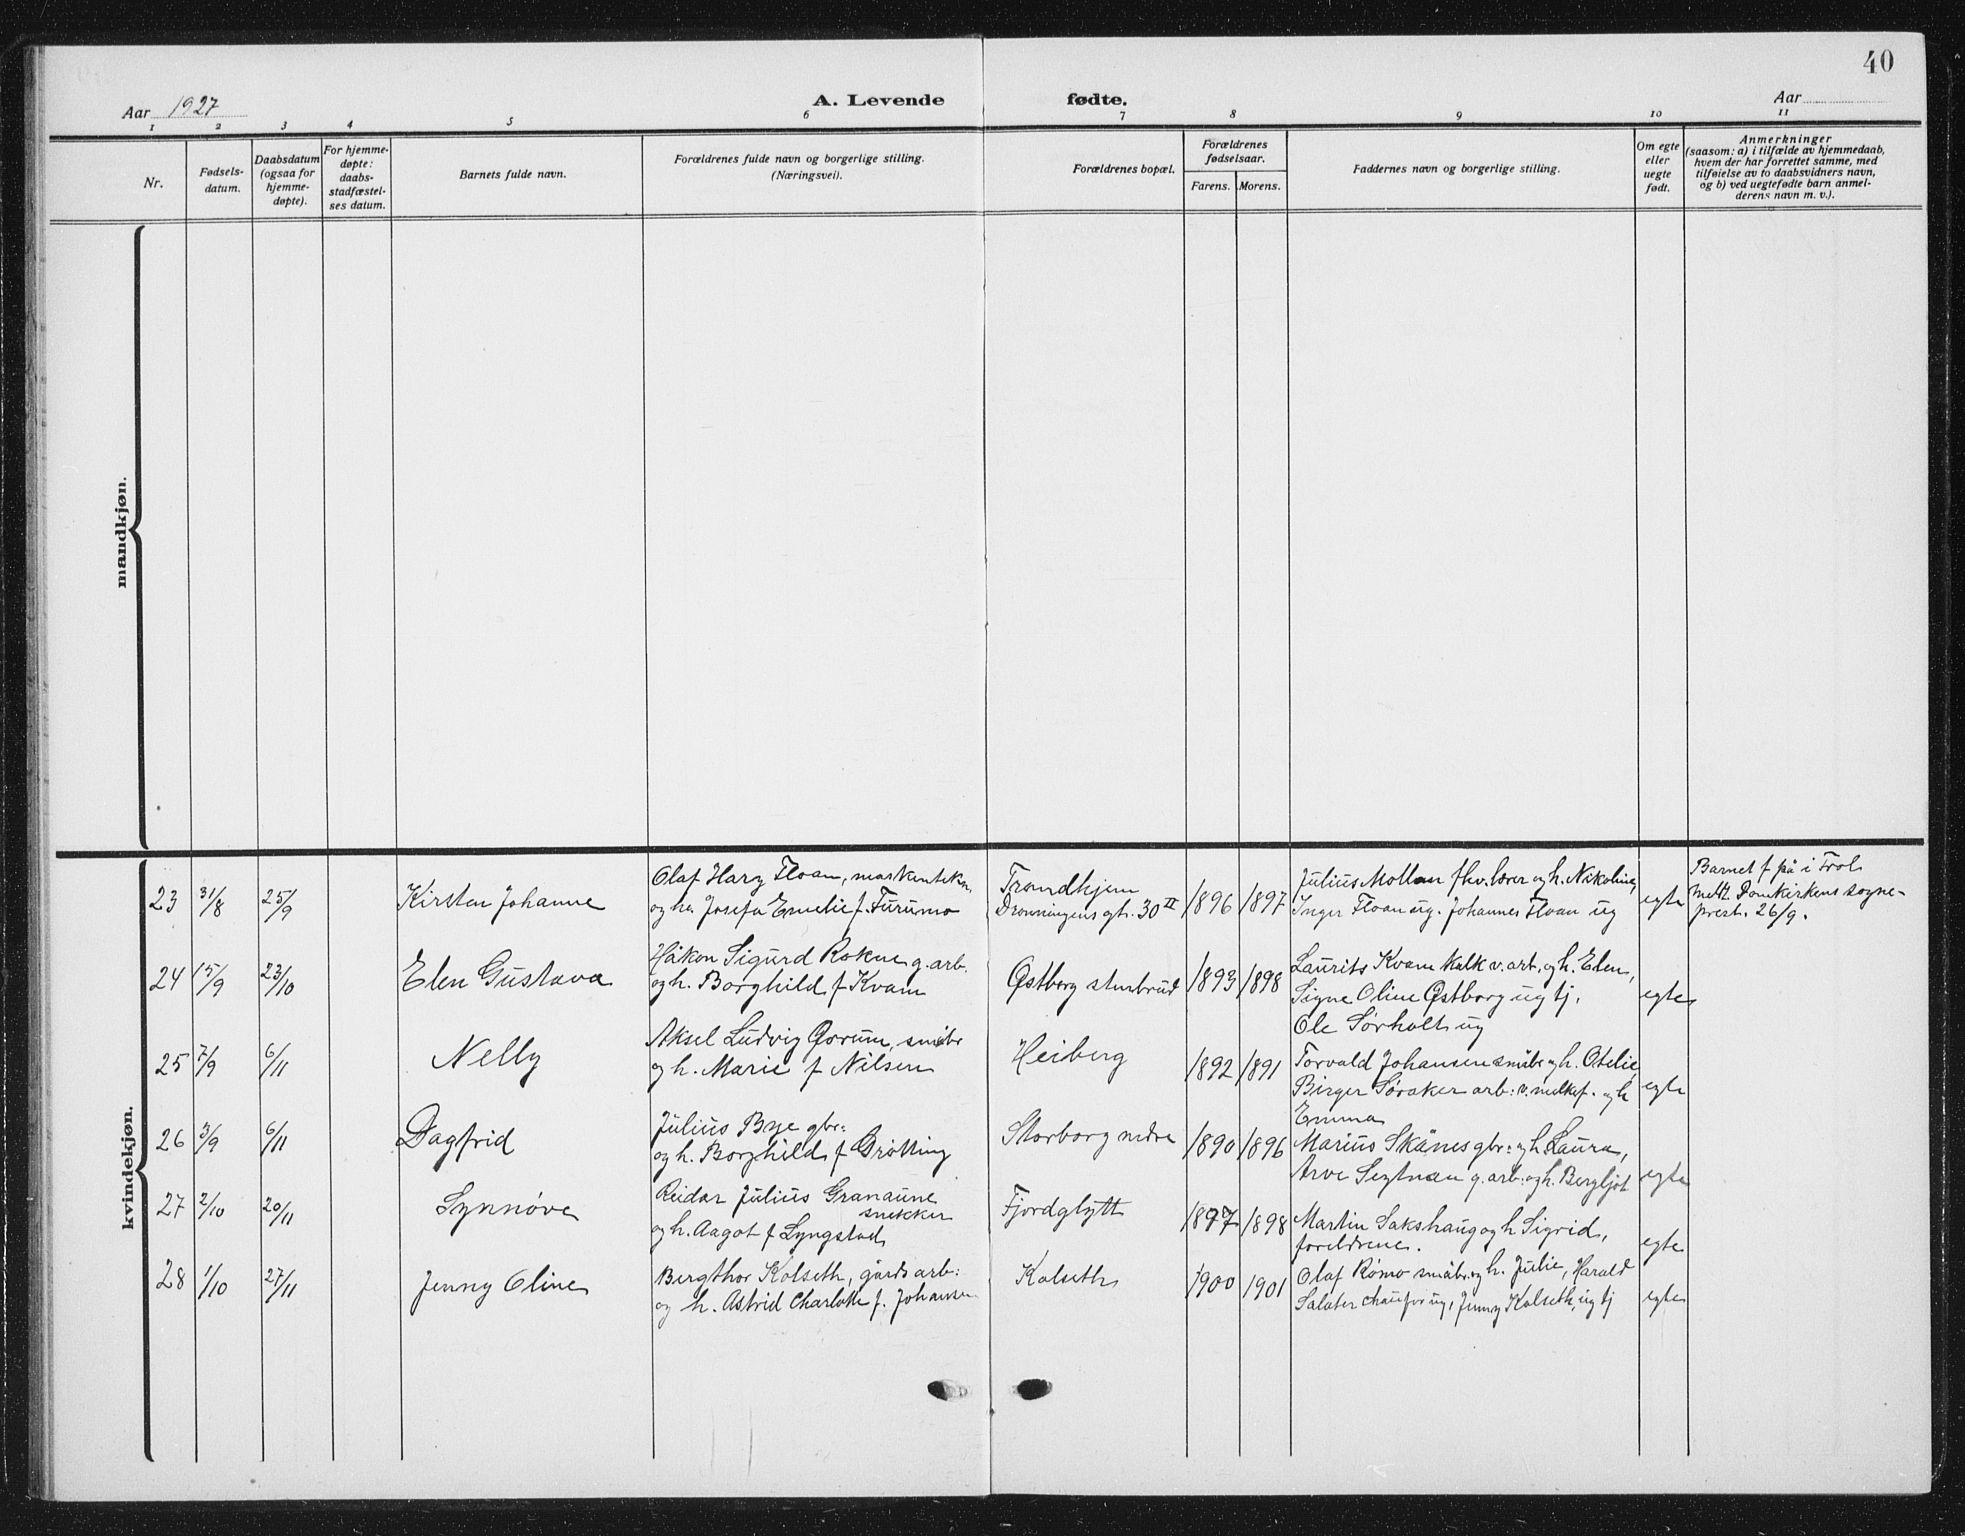 40
Aar 1927
A. Levende fødte.
Aar
1 2 3 4 5 6 7 8 9 10 11
Nr.
Fødsels-
datum.
Daabsdatum
(ogsaa for
hjemme-
døpte).
For hjemme-
døpte:
daabs-
stadfæstel-
ses datum.
Barnets fulde navn.
Forældrenes fulde navn og borgerlige stilling.
(Næringsvei).
Forældrenes bopæl.
Forældrenes
fødselsaar.
Farens. Morens.
Faddernes navn og borgerlige stilling.
Om egte
eller
uegte
født.
Anmerkninger
(saasom: a) i tilfælde av hjemmedaab,
hvem der har forrettet samme, med
tilføielse av to daabsvidners navn,
og b) ved uegtefødte barn anmel-
derens navn m. v.).
mandkjøn.
kvindekjøn.
23 31/8 25/9
Kirsten Johanne
Olaf Harry Floan,
og h. Josefa Emelie f. Furumo
Trondhjem
Dronningens gt. 30 II
1896 1897
Julius Mollan fhv. lærer og h. Nikoline,
Inger Floan ug. Johannes Floan ug
egte
Barnet f på i Frol
Domkirkens sogne-
prest. 26/9.
24 15/9 23/10
Elen Gustava
Håkon Sigurd Rokne g. arb.
og h. Borghild f Kvam
Østborg
1893 1898
Laurits Kvam kalkv. arb. og h. Elen,
Signe Oline Østborg ug tj.
Ole Sørholt ug
egte
25 7/9 6/11
Nelly
Aksel Ludvig Gorum, småbr
og h. Marie f Nilsen
Heiberg
1892 1891
Torvald Johansen småbr og h. Otelie,
Birger Søraker arb. v. melkef. og h
Emma
egte
26 3/9 6/11
Dagfrid
Julius Bye gbr:
og h. Borghild f Grøtting
Storborg nedre
1890 1896
Marius Skånes gbr: og h. Laura,
Arve Segtnan g. arb: og h. Bergljot
egte
27 2/10 20/11
Synnøve
Reidar Julius Granaune
snekker
og h. Aagot f Lyngstad
Fjordglytt
1897 1898
Martin Sakshaug og h Sigrid,
foreldrene.
egte
28 1/10 27/11
Jenny Oline
Bergthor Kolseth, gårdsarb:
og h. Astrid Charlotte f. Johansen
Kolseth
1900 1901
Olaf Rømo småbr. og h. Julie, Harald
Salater chaufør ug, Jenny Kolseth, ug tj
egte